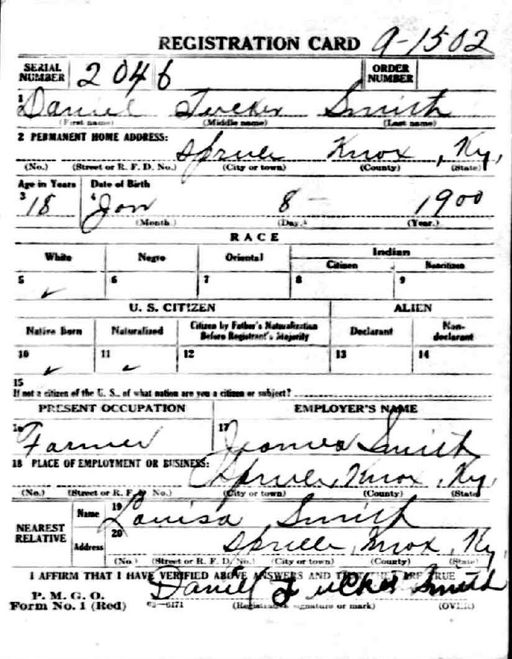 REGISTRATION CARD A-1502
SERIAL NUMBER 2046 ORDER NUMBER
1 Daniel Tucker Smith
(First name) (Middle name) (Last name)
2 PERMANENT HOME ADDRESS:
Knox, Ky,
(No.) (Street or R. F. D. No.) (City or town) (County) (State)
Age in Years Date of Birth
3 18 4 Jan 8 - 1900
(Month.) (Day.) (Year.)
RACE
White Negro Oriental Indian
Citizen Noncitizen
5 ✓ 6 7 8 9
U. S. CITIZEN ALIEN
Native Born Naturalized Citizen by Father's Naturalization Before Registrant's Majority Declarant Non-declarant
10 ✓ 11 ✓ 12 13 14
15
If not a citizen of the U. S., of what nation are you a citizen or subject?
PRESENT OCCUPATION EMPLOYER'S NAME
16 Farmer 17 Smith
18 PLACE OF EMPLOYMENT OR BUSINESS:
Knox, Ky,
(No.) (Street or R. F. D. No.) (City or town) (County) (State)
NEAREST RELATIVE Name 19 Louisa Smith
Address 20 Knox, Ky
(No.) (Street or R. F. D. No.) (City or town) (County) (State)
I AFFIRM THAT I HAVE VERIFIED ABOVE ANSWERS AND THAT THEY ARE TRUE
P. M. G. O.
Form No. 1 (Red) 03-6171 Daniel Tucker Smith
(Registrant's signature or mark) (OVER)